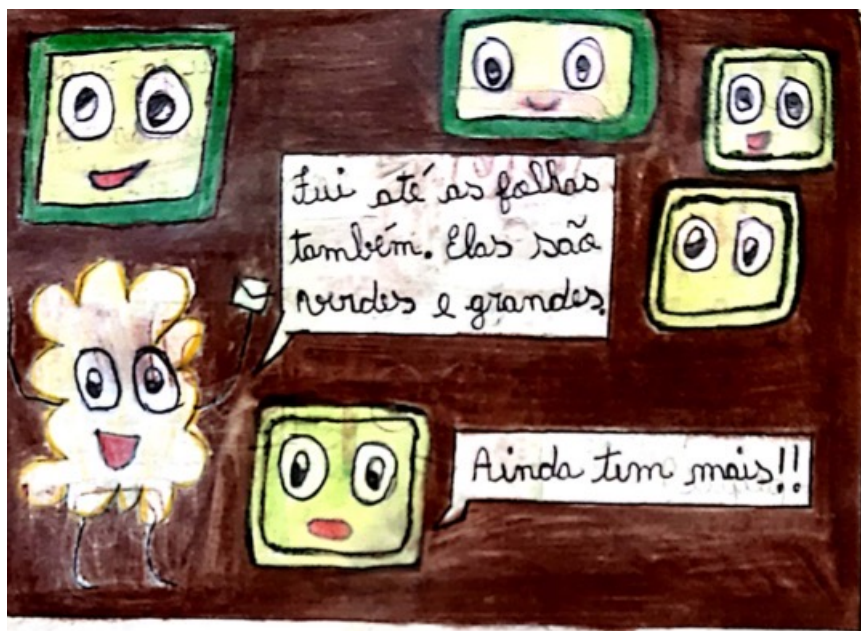 Fui até as folhas
também. Elas são
verdes e grandes.
Ainda tem mais!!